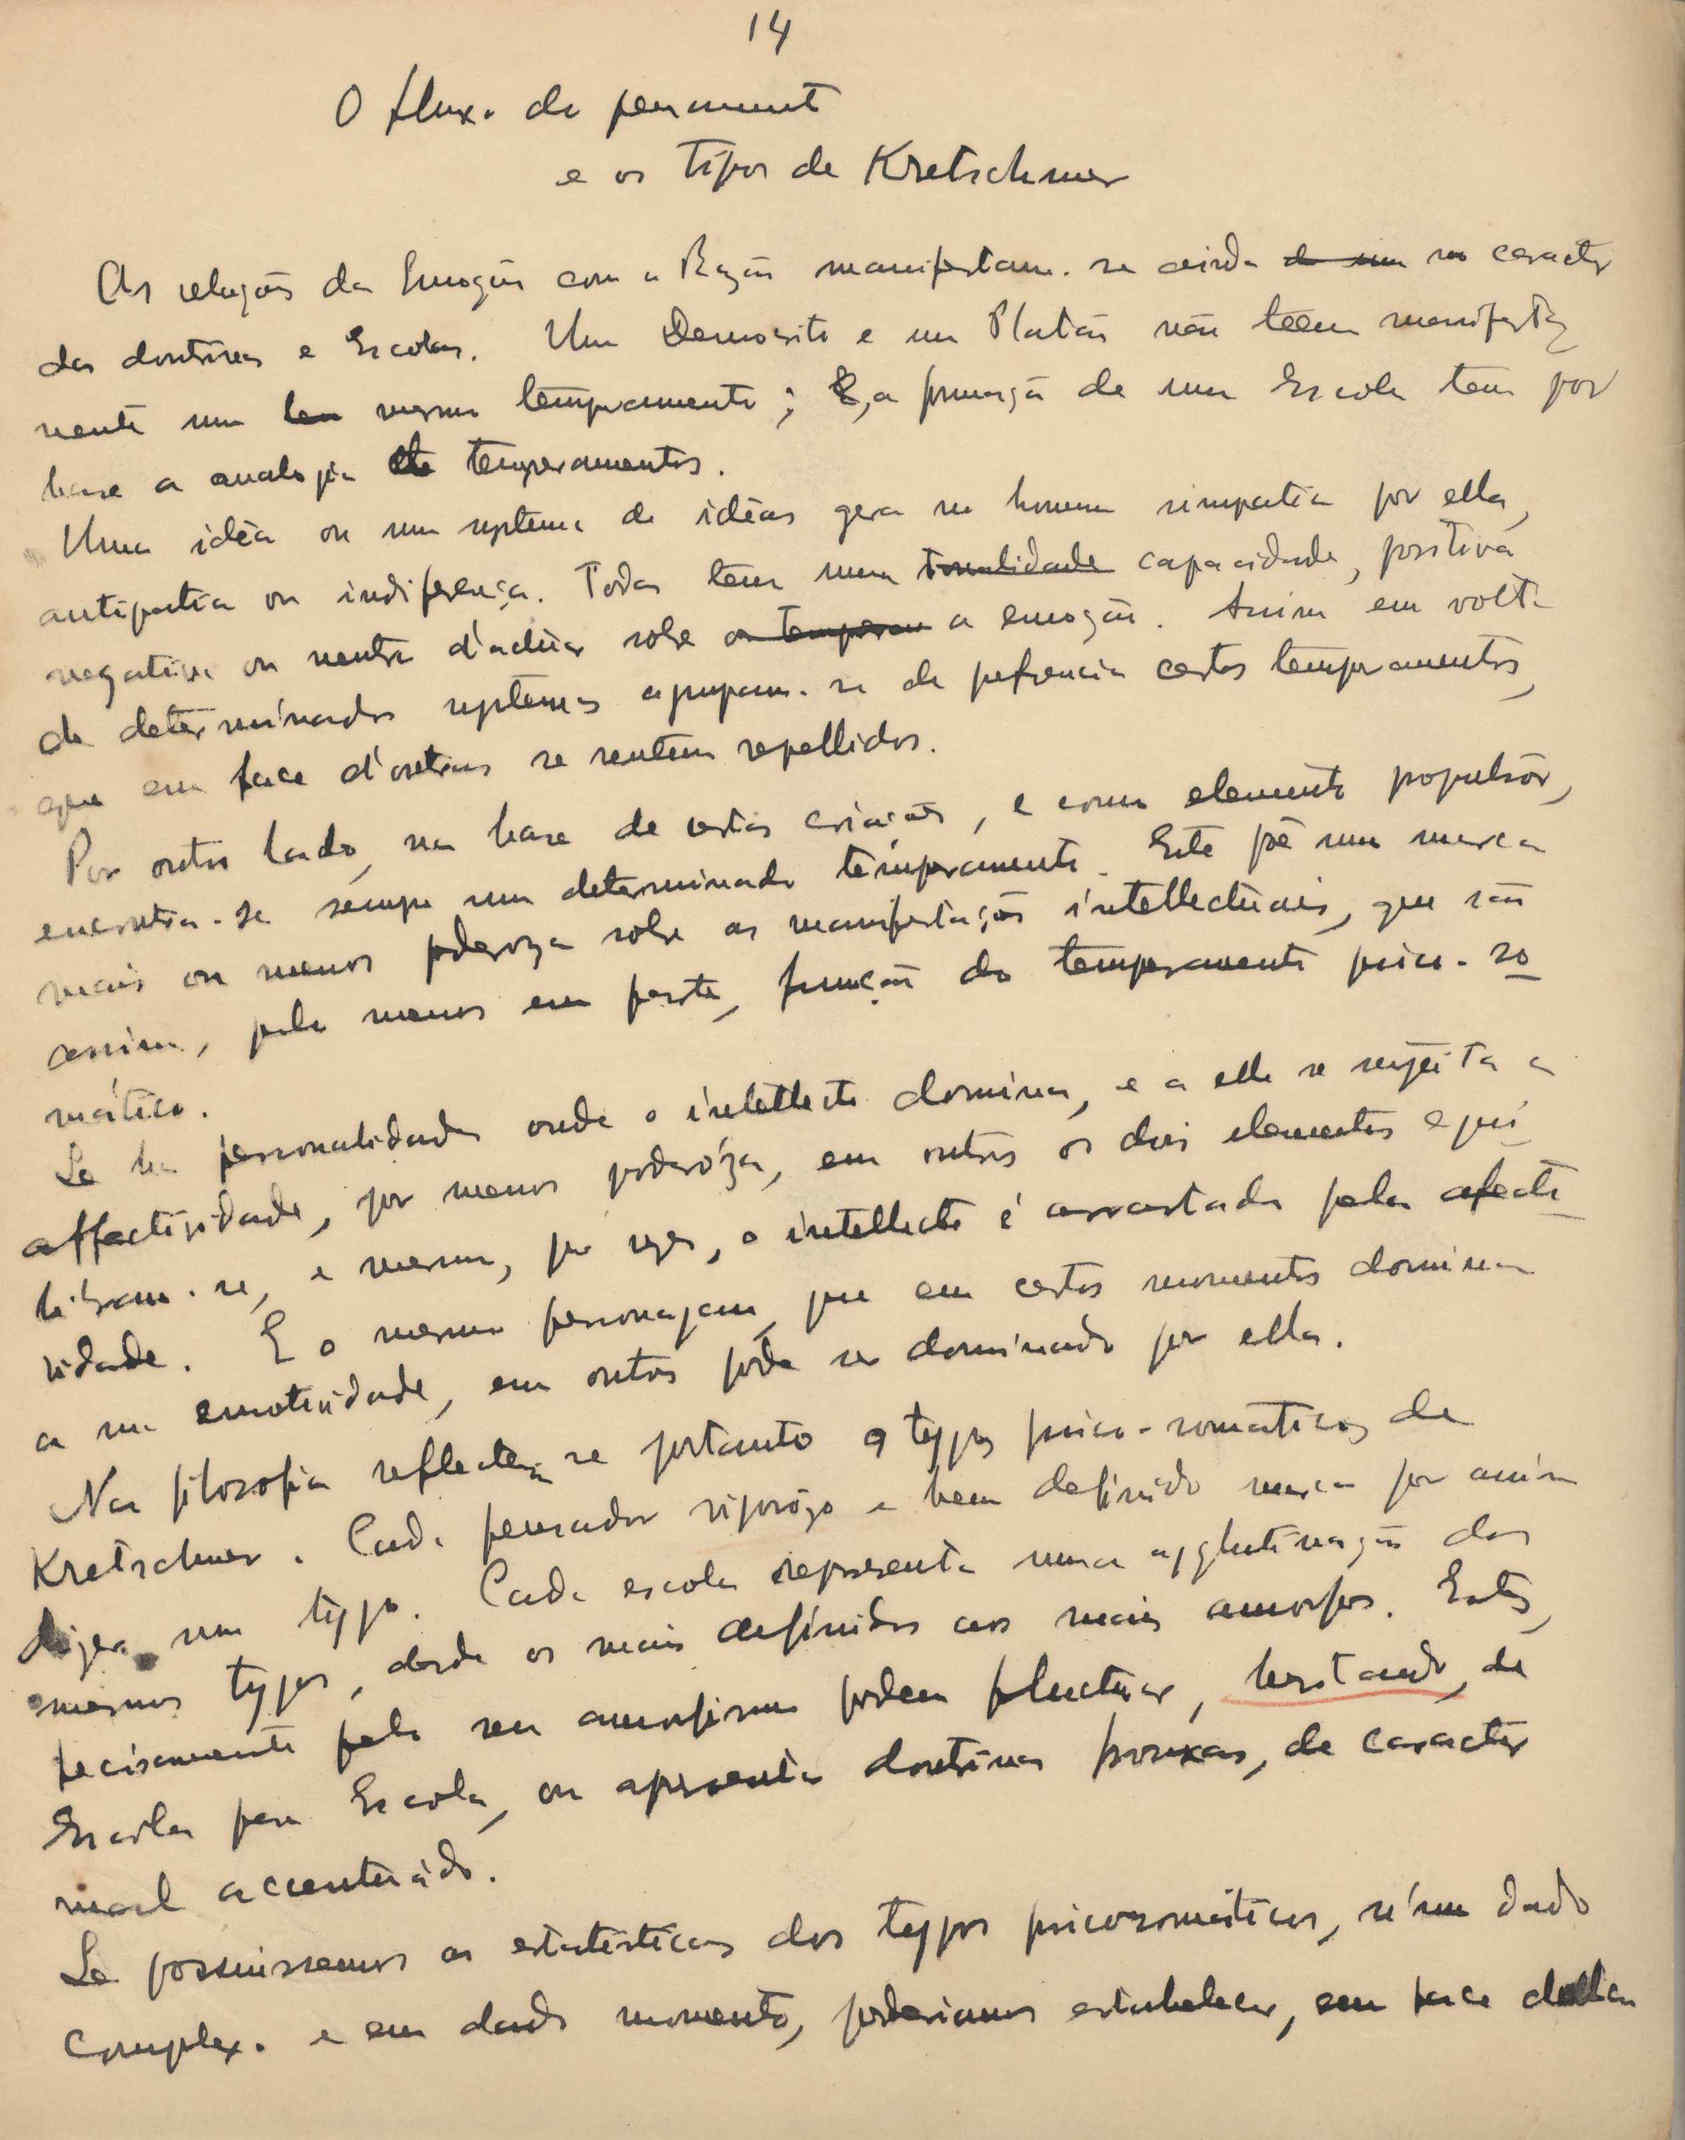 14
O fluxo do pensamento
e os tipos de Kretschmer
As relações da Emoção com a Razão manifestam-se ainda no caracter
das doutrinas e Escolas. Um Demócrito e um Platão não teem manifesta
mente um mesmo temperamento; e, a formação de uma Escola tem por
base a analogia de temperamentos.
Uma idèa ou um systema de idèas gera no homem simpatia por ella,
antipatia ou indiferença. Todas tem uma tonalidade capacidade, positiva
negativa ou neutra d'actuar sobre os temperam a emoção. Assim em volta
de determinados systemas agrupam-se de preferencia certos temperamentos,
que em face d'outros se sentem repellidos.
Por outro lado, na base de certas criações, e como elemento propulsôr,
encontra-se sempre um determinado temperamento. Este põe uma marca
mais ou menos poderoza sobre as manifestações intellectuais, que são
assim, pelo menos em parte, função do temperamento psico-so
mático.
Se ha personalidades onde o intellecto domina, e a elle se sujeita a
affectividade, por menos poderóza, em outros os dois elementos equi
libram-se, e mesmo, por vezes, o intellecto é arrastado pela afecti
vidade. E o mesmo personagem, que em certos momentos domina
a sua emotividade, em outros póde ser dominado por ella.
Na filosofia reflectem se portanto os typos psico-somaticos de
Kretschmer. Cada pensador rigorózo e bem definido marca por assim
dizer um typo. Cada escola representa uma agglutinação dos
mesmos typos, desde os mais definidos aos mais amorfos. Estes,
precisamente pelo seu amorfismo podem fluctuar, hesitando, de
Escola para Escola, ou apresentar doutrinas frouxas, de caracter
mal accentuádo.
Se possuissemos as estatisticas dos typos psicosomáticos, n'um dado
complexo e em dado momento, poderiamos estabelecer, em face dellas